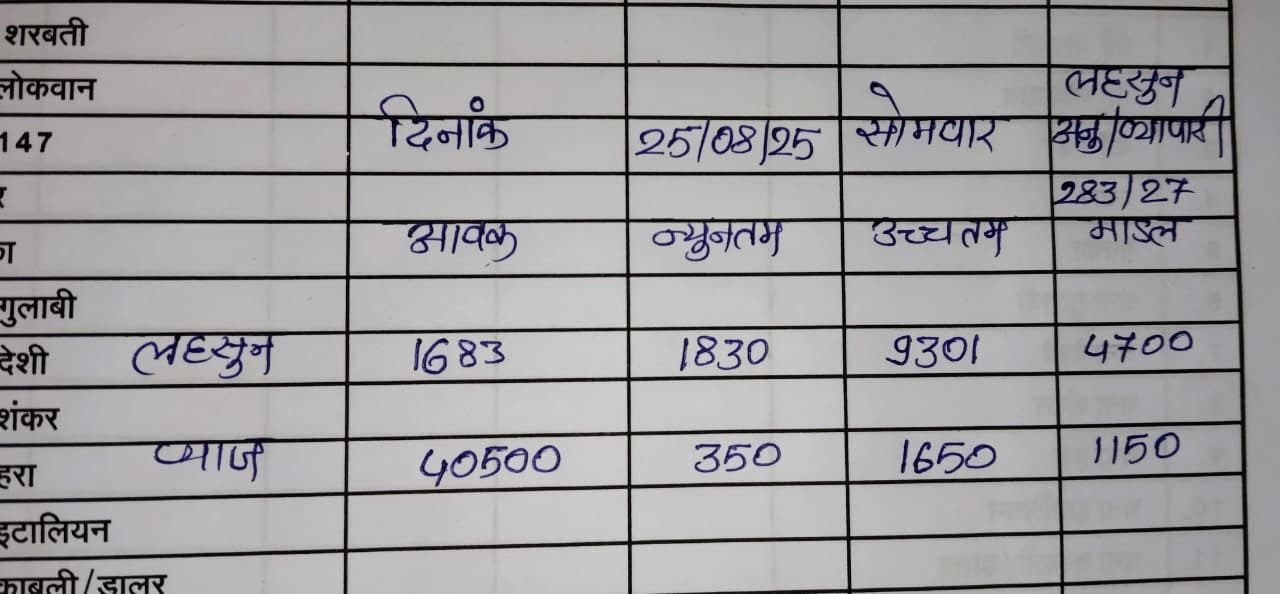 शरबती
लोकवान लहसुन
147 दिनांक 25/08/25 सोमवार अनु/व्यापारी
283/27
आवक न्यूनतम उच्चतम माडल
गुलाबी
देशी लहसुन 1683 1830 9301 4700
शंकर
हरा प्याज 40500 350 1650 1150
इटालियन
काबली/डालर